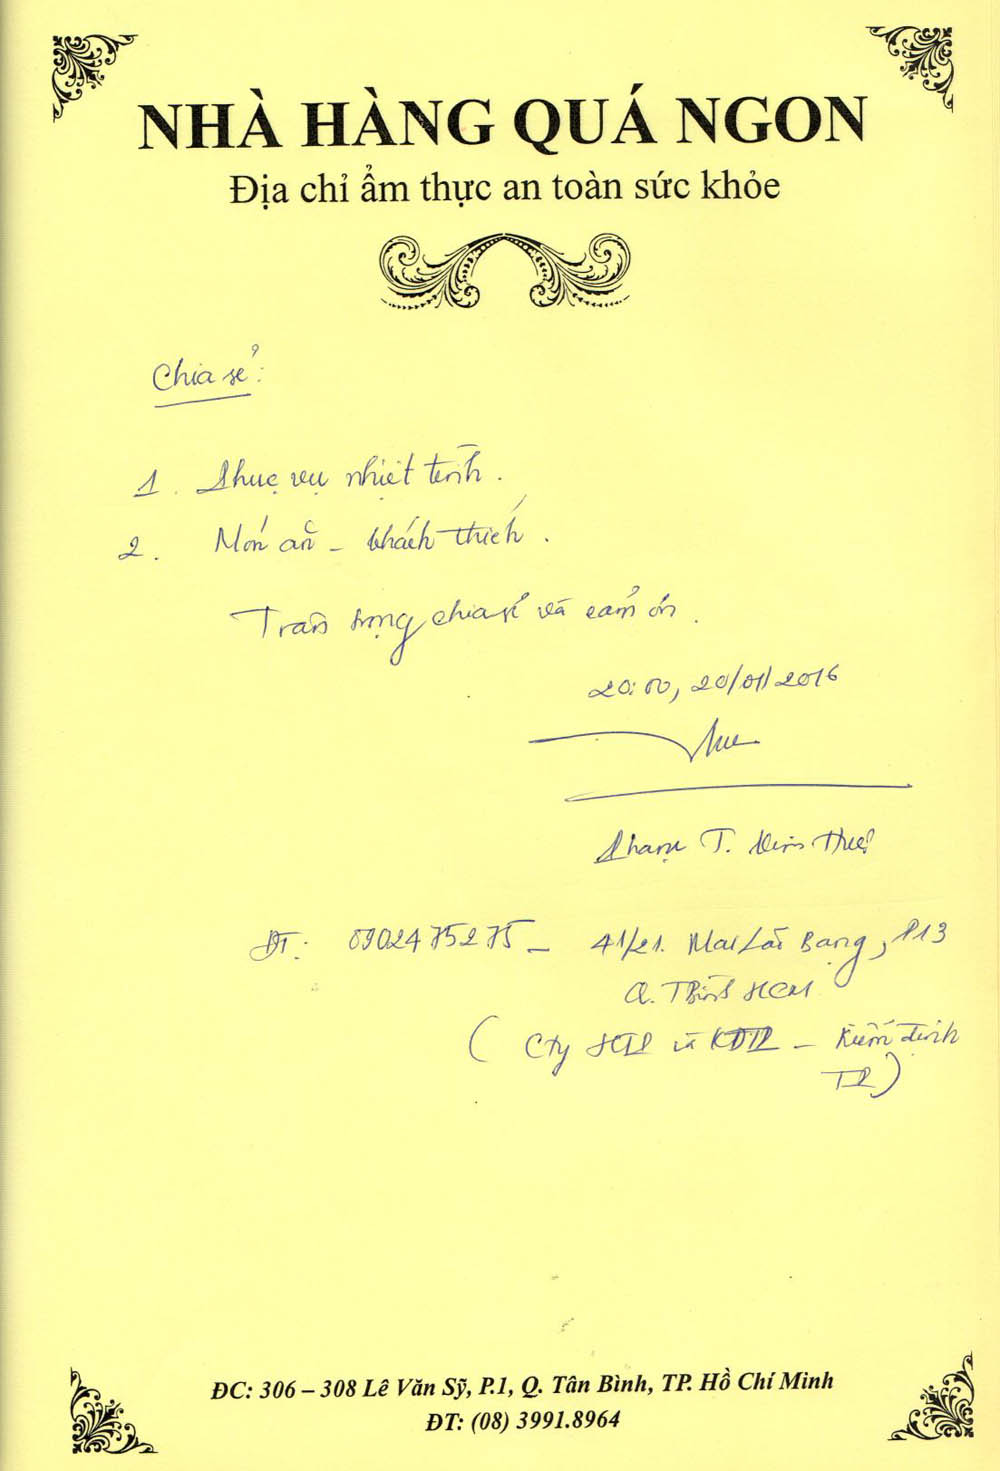 NHÀ HÀNG QUÁ NGON
Địa chỉ ẩm thực an toàn sức khỏe
Chia sẻ:
1. Phục vụ nhiệt tình.
2. Món ăn - khách thích.
Trân trọng chia sẻ và cảm ơn.
20:00, 20/01/2016
Phạm T. Kim Huệ
ĐT: 0902475275 - 41/21. Mai Lão Bạng, P13
Q. TBình HCM
(Cty và - Kiểm định
TP)
ĐC: 306 – 308 Lê Văn Sỹ, P.1, Q. Tân Bình, TP. Hồ Chí Minh
ĐT: (08) 3991.8964